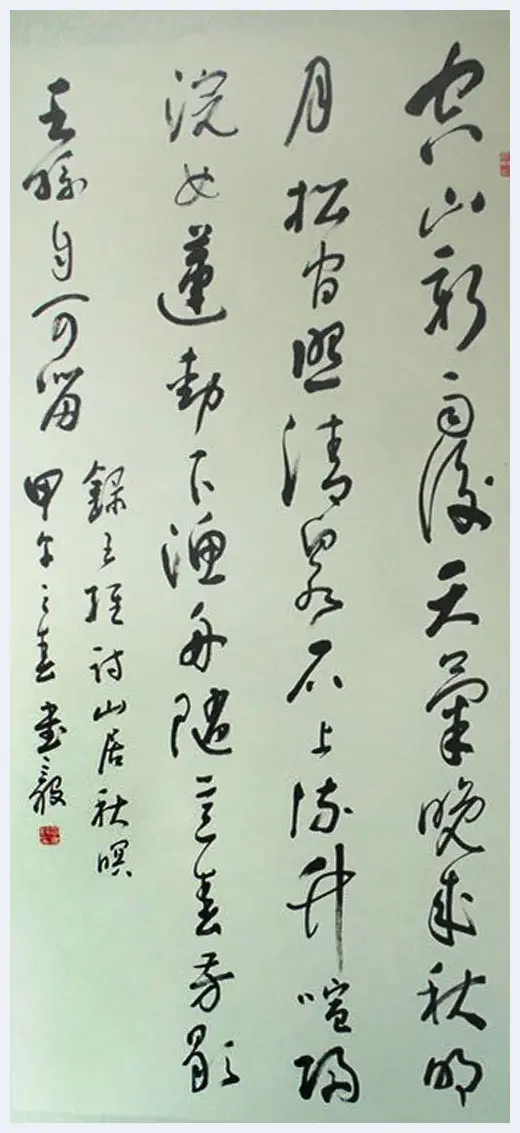 空山新雨後天氣晚來秋明
月松間照清泉石上流竹喧歸
浣女蓮動下漁舟隨意春芳歇
王孫自可留
錄王維詩山居秋暝
甲午之春